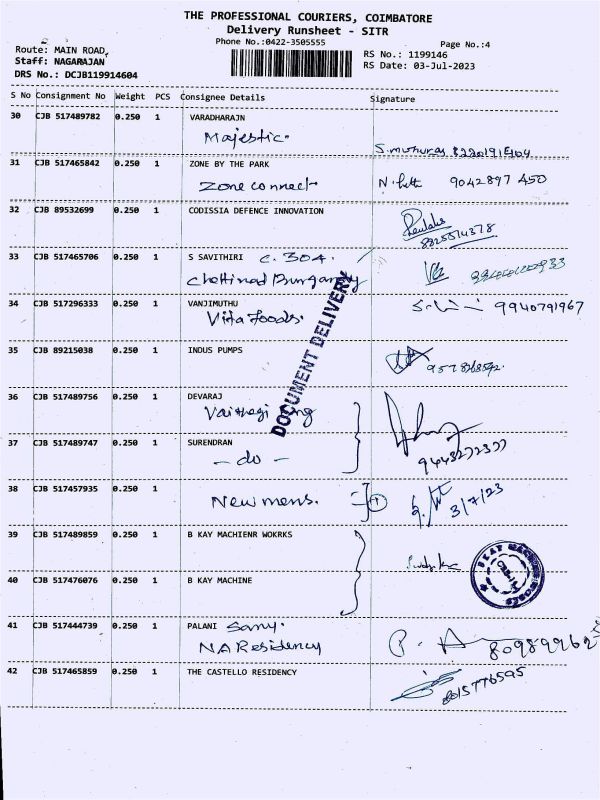 THE PROFESSIONAL COURIERS, COIMBATORE
Delivery Runsheet - SITR
Phone No.:0422-3505555
Page No.:4
Route: MAIN ROAD,
Staff: NAGARAJAN
DRS No.: DCJB119914604
RS No.: 1199146
RS Date: 03-Jul-2023
S No Consignment No Weight PCS Consignee Details Signature
30 CJB 517489782 0.250 1 VARADHARAJN
Majestic.
31 CJB 517465842 0.250 1 ZONE BY THE PARK
Zone connect 9042897 450
32 CJB 89532699 0.250 1 CODISSIA DEFENCE INNOVATION
33 CJB 517465706 0.250 1 S SAVITHIRI C. 304.
Chettinad
34 CJB 517296333 0.250 1 VANJIMUTHU
Vita Foods. 9940791967
DOCUMENT DELIVERY
35 CJB 89215038 0.250 1 INDUS PUMPS
36 CJB 517489756 0.250 1 DEVARAJ
37 CJB 517489747 0.250 1 SURENDRAN
- do -
9443272377
38 CJB 517457935 0.250 1
Newmens.
3/7/23
39 CJB 517489859 0.250 1 B KAY MACHIENR WOKRKS
40 CJB 517476076 0.250 1 B KAY MACHINE
41 CJB 517444739 0.250 1 PALANI Samy.
NA Residency
42 CJB 517465859 0.250 1 THE CASTELLO RESIDENCY
8015776595